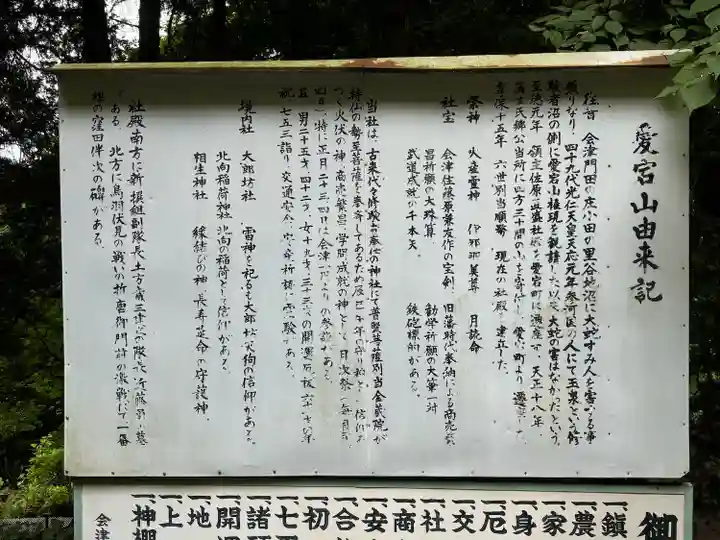 愛宕山由来記
往昔 会津門田の庄小田の里谷地沼に大蛇すみ人を害する事
頻りなり 四十九代光仁天皇天応元年参河国の人にて玉泉という修
験者沼の側に愛宕山権現を観請した以来大蛇の害はなかったという。
至徳元年 領主佐原 盛社殿を愛宕町に 天正十八年
蒲生氏郷公当所に四方三十間の山を寄付し愛宕町より遷
享保十五年 六世別当順勢 現在の社殿を建立した。
祭神 火産霊神 伊邪那美尊 月読命
社宝 会津住藤原兼友作の宝剣、旧藩時代奉納による商売
昌祈願の大珠算 勧学祈願の大筆一対
武道成就の千本矢 鉄砲標的がある。
当社は、古来代々修験が奉仕の神社にて普賢菩薩別当金蔵院が
持仏の勢至菩薩を奉斎してあるため辰巳午年の守り神と
つく火伏の神、商売繁昌、学問成就の神として、月次祭(毎月
四日)特に正月二十三、四日は会津一 の参詣である。
五 男二十五才、四十二才、女十九才、三十三才の開運厄祓
祝 七五三詣り、交通安全、 祈願に霊験がある。
境内社 太郎坊社 雷神を祀るも太郎坊天狗の信仰がある。
北向稲荷神社 北向の稲荷として信仰がある。
相生神社 縁結びの神 長寿延命の守護神。
社殿南方に新撰組副隊長土方歳三 隊長近藤勇の墓
がある。北方に鳥羽伏見の戦いの折唐御門前の激戦にて一番
槍の窪田伴次の碑がある。
御
一、鎮
一、農
一、家
一、身
一、厄
一、交
一、社
一、商
一、安
一、合
一、初
一、七
一、諸
一、開
一、地
一、上
一、神棚
会津